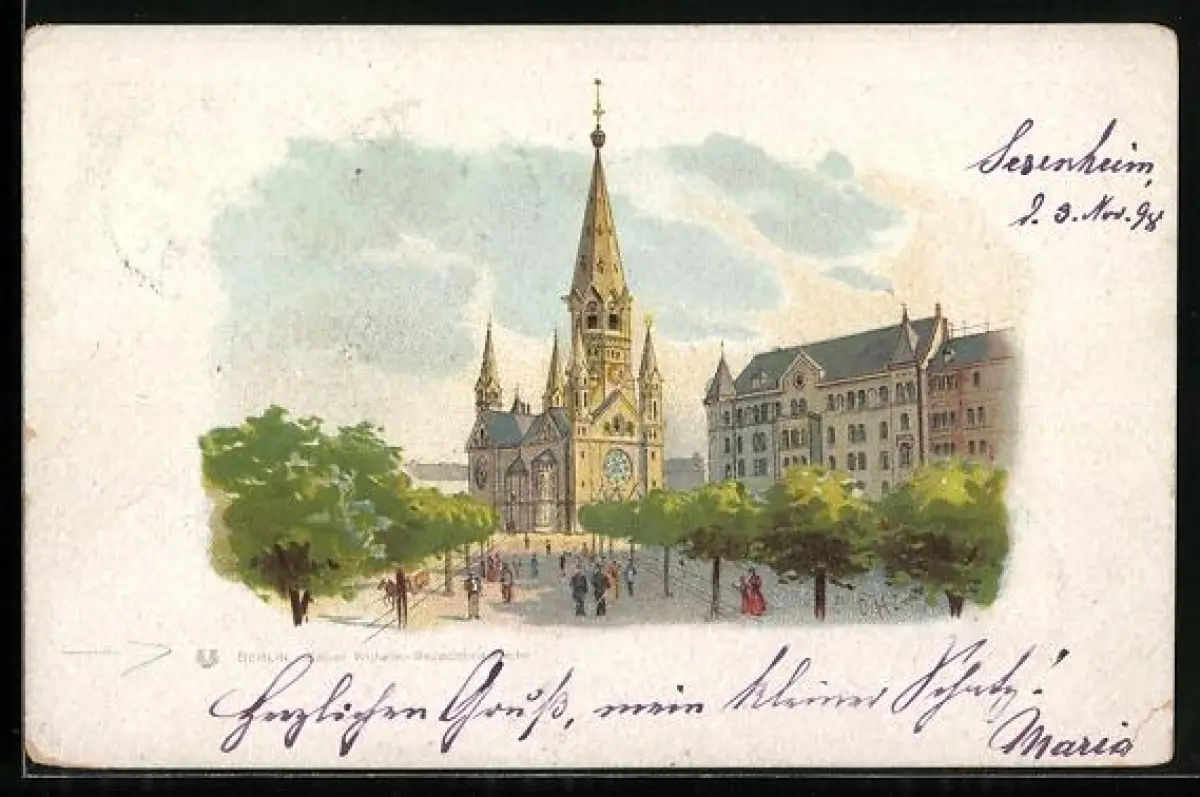 Sesenheim,
d. 3. Nov. 98
Berlin Kaiser Wilhelm-Gedächtniskirche
Herzlichen Gruß, mein kleiner Schatz!
Maria